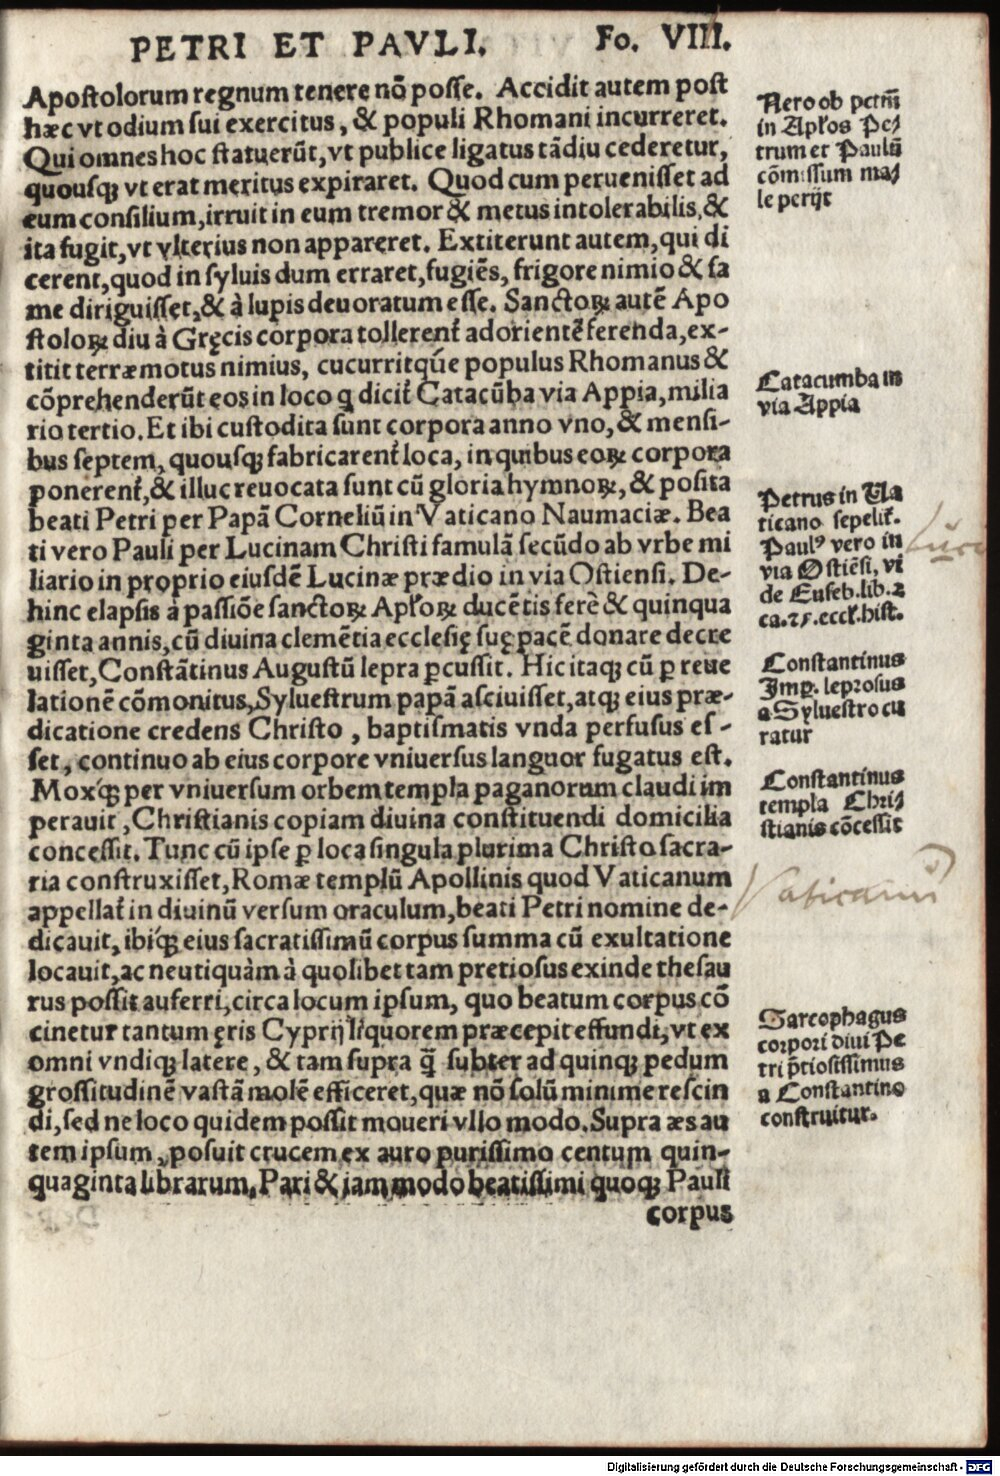 PETRI ET PAVLI. Fo. VIII.
Apostolorum regnum tenere nō posse. Accidit autem post
hæc vt odium sui exercitus, & populi Rhomani incurreret.
Qui omnes hoc statuerūt, vt publice ligatus tādiu cederetur,
quousqꝫ vt erat meritus expiraret. Quod cum peruenisset ad
eum consilium, irruit in eum tremor & metus intolerabilis, &
ita fugit, vt vlterius non appareret. Extiterunt autem, qui di
cerent, quod in syluis dum erraret, fugiēs, frigore nimio & fa
me diriguisset, & à lupis deuoratum esse. Sanctoꝝ autē Apo
stoloꝝ diu à Gręcis corpora tollerent᷑ ad orientē ferenda, ex-
titit terræmotus nimius, cucurritqꝫ́ue populus Rhomanus &
cōprehenderūt eos in loco q dicit᷑ Catacūba via Appia, milia
rio tertio. Et ibi custodita sunt corpora anno vno, & mensi-
bus septem, quousqꝫ fabricarent᷑ loca, in quibus eoꝝ corpora
ponerent᷑, & illuc reuocata sunt cū gloria hymnoꝝ, & posita
beati Petri per Papā Corneliū in Vaticano Naumaciæ. Bea
ti vero Pauli per Lucinam Christi famulā secūdo ab vrbe mi
liario in proprio eiusdē Lucinæ prædio in via Ostiensi. De-
hinc elapsis à passiōe sanctoꝝ Apl̄oꝝ ducētis ferè & quinqua
ginta annis, cū diuina clemētia ecclesię suę pacē donare decre
uisset, Constātinus Augustū lepra ꝑcussit. Hic itaqꝫ cū ꝑ reue
lationē cōmonitus, Syluestrum papā asciuisset, atqꝫ eius præ-
dicatione credens Christo, baptismatis vnda perfusus es-
set, continuo ab eius corpore vniuersus languor fugatus est.
Moxq́ꝫ per vniuersum orbem templa paganorum claudi im
perauit, Christianis copiam diuina constituendi domicilia
concessit. Tunc cū ipse ꝑ loca singula plurima Christo sacra-
ria construxisset, Romæ templū Apollinis quod Vaticanum
appellat᷑ in diuinū versum oraculum, beati Petri nomine de-
dicauit, ibiq́ꝫ eius sacratissimū corpus summa cū exultatione
locauit, ac neutiquàm à quolibet tam pretiosus exinde thesau
rus possit auferri, circa locum ipsum, quo beatum corpus cō
cinetur tantum ęris Cyprij liquorem præcepit effundi, vt ex
omni vndiqꝫ latere, & tam supra q̄ subter ad quinqꝫ pedum
grossitudinē vastā molē efficeret, quæ nō solū minime rescin
di, sed ne loco quidem possit moueri vllo modo. Supra æs au
tem ipsum, posuit crucem ex auro purissimo centum quin-
quaginta librarum. Pari & iam modo beatissimi quoqꝫ Pauli
corpus
Nero ob petm̄
in Apl̄os Pe/
trum et Paulū
cōmissum ma/
le perijt
Catacumba in
via Appia
Petrus in Va
ticano sepelit᷑.
Paulꝰ vero in
via Ostiēsi, vi
de Euseb. lib. 2
ca. 25. eccl̄. hist.
Constantinus
Imp. leprosus
a Syluestro cu
ratur
Constantinus
templa Chri/
stianis cōcessit
Vaticanū
Sarcophagus
corpori diui Pe
tri p̄tiosissimus
a Constantino
construitur.
Digitalisierung gefördert durch die Deutsche Forschungsgemeinschaft - DFG